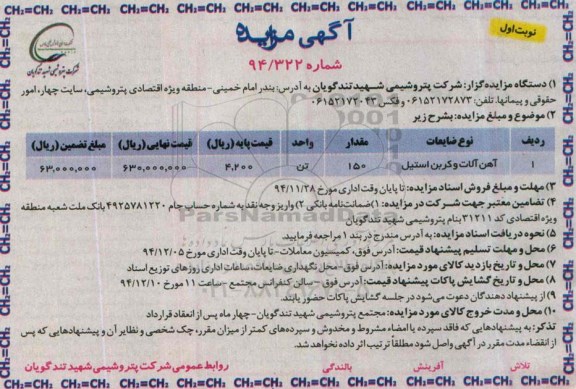 CH₂=CH₂ CH₂=CH₂ CH₂=CH₂ CH₂=CH₂ CH₂=CH₂ CH₂=CH₂ CH₂=CH₂ CH₂=CH₂
نوبت اول
آگهی مزایده
شماره ۹۴/۳۲۲
شرکت پتروشیمی شهید تندگویان
۱) دستگاه مزایده‌گزار: شرکت پتروشیمی شهید تندگویان به آدرس: بندر امام خمینی- منطقه ویژه اقتصادی پتروشیمی، سایت چهار، امور
حقوقی و پیمانها. تلفن: ۰۶۱۵۲۱۷۲۸۷۳ و فکس ۰۶۱۵۲۱۷۲۰۴۳
۲) موضوع و مبلغ مزایده: بشرح زیر
ردیف نوع ضایعات مقدار واحد قیمت پایه (ریال) قیمت نهایی (ریال) مبلغ تضمین (ریال)
۱ آهن آلات و کربن استیل ۱۵۰ تن ۴,۲۰۰ ۶۳۰,۰۰۰,۰۰۰ ۶۳,۰۰۰,۰۰۰
۳) مهلت و مبلغ فروش اسناد مزایده: تا پایان وقت اداری مورخ ۹۴/۱۱/۲۸
۴) تضامین معتبر جهت شرکت در مزایده: ۱) ضمانت‌نامه بانکی ۲) واریز وجه نقد به شماره حساب جام ۴۹۲۵۷۸۱۲۲۰ بانک ملت شعبه منطقه
ویژه اقتصادی کد ۳۱۲۱۱ بنام پتروشیمی شهید تندگویان
۵) نحوه دریافت اسناد مزایده: به آدرس مندرج در بند ۱ مراجعه فرمایید.
۶) محل و مهلت تسلیم پیشنهاد قیمت: آدرس فوق، کمیسیون معاملات- تا پایان وقت اداری مورخ ۹۴/۱۲/۰۵
۷) محل و تاریخ بازدید کالای مورد مزایده: آدرس فوق- محل نگهداری ضایعات، ساعات اداری روزهای توزیع اسناد
۸) محل و تاریخ گشایش پاکات پیشنهاد قیمت: آدرس فوق- سالن کنفرانس مجتمع- ساعت ۱۱ مورخ ۹۴/۱۲/۱۰
۹) از پیشنهاد دهندگان دعوت می‌شود در جلسه گشایش پاکات حضور یابند.
۱۰) محل و مدت خروج کالای مورد مزایده: مجتمع پتروشیمی شهید تندگویان- چهار ماه پس از انعقاد قرارداد
تذکر: به پیشنهادهایی که فاقد سپرده یا امضاء مشروط و مخدوش و سپرده‌های کمتر از میزان مقرر، چک شخصی و نظایر آن و پیشنهادهایی که پس
از انقضاء مدت مقرر در آگهی واصل شود مطلقاً ترتیب اثر داده نخواهد شد.
تلاش آفرینش بالندگی روابط عمومی شرکت پتروشیمی شهید تندگویان
CH₂=CH₂ CH₂=CH₂ CH₂=CH₂ CH₂=CH₂ CH₂=CH₂ CH₂=CH₂ CH₂=CH₂ CH₂=CH₂
ParsNamadData